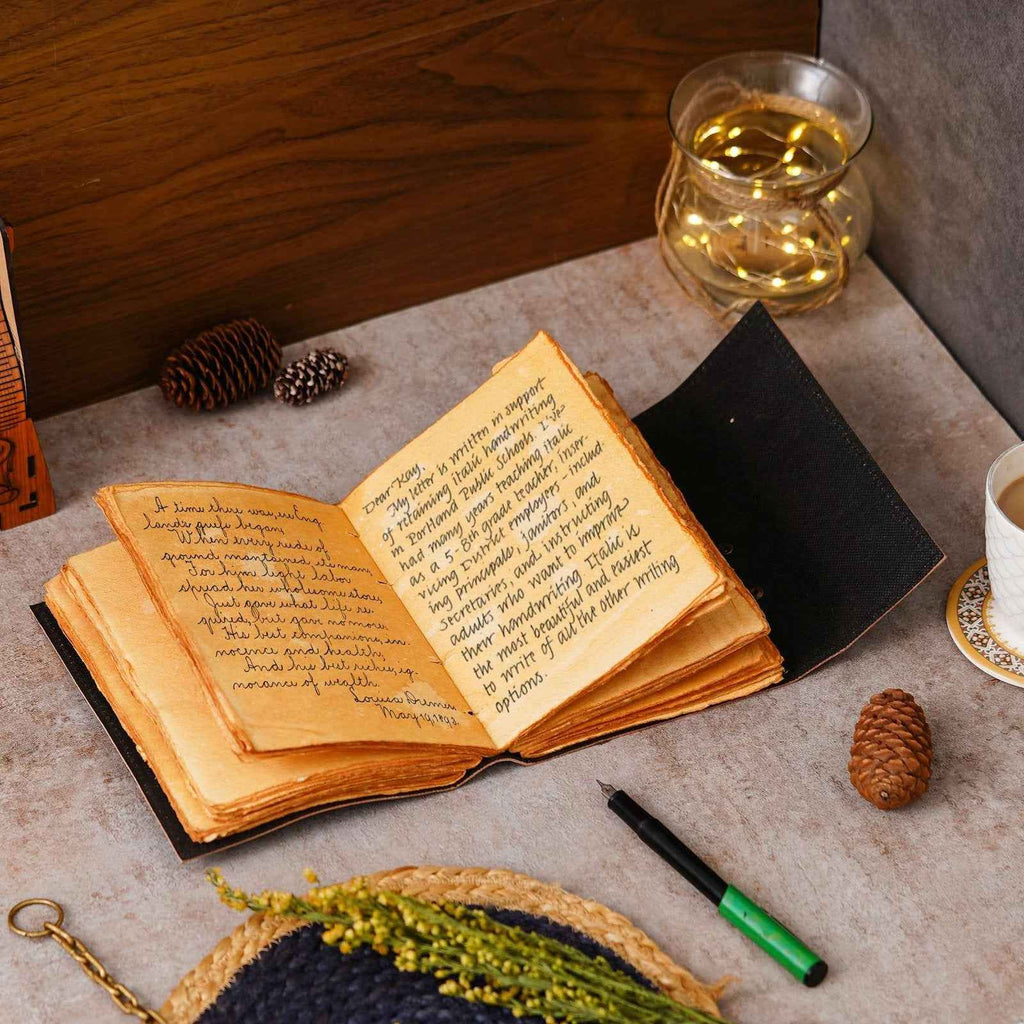 A time there was, ere Eng
land's griefs began,
When every rude of
ground maintained its man.
For him light labor
spread her wholesome store,
Just gave what life re
quired, but gave no more.
His best companions, in
nocence and health,
And his best riches, ig-
norance of wealth.
Louisa
May 19, 1893.
Dear Kay,
My letter is written in support
of retaining italic handwriting
in Portland Public Schools. I've
had many years teaching italic
as a 5-8th grade teacher, inser-
vicing District employees - includ
ing principals, janitors and
secretaries, and instructing
adults who want to improve
their handwriting Italic is
the most beautiful and easiest
to write of all the other writing
options.